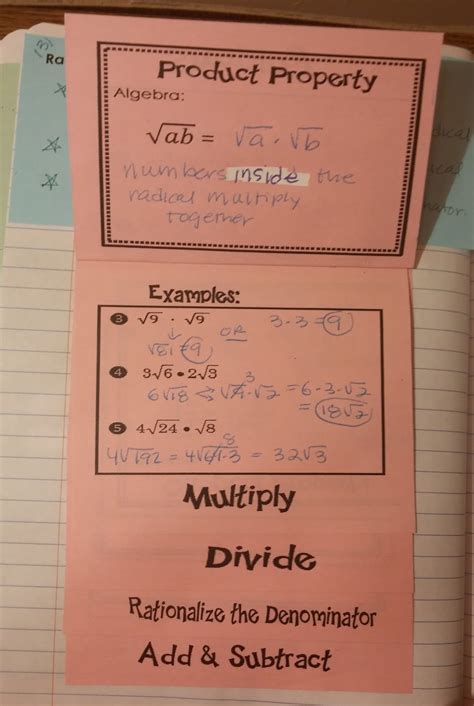 Ra
Product Property
Algebra:
√ab = √a · √b
numbers inside the
radical multiply
together
Examples:
3 √9 · √9 OR 3·3=9
√81=9
4 3√6 • 2√3
6√18 √9·√2 3 =6·3·√2
=18√2
5 4√24 • √8
4√192 = 4√64·3 8 = 32√3
Multiply
Divide
Rationalize the Denominator
Add & Subtract